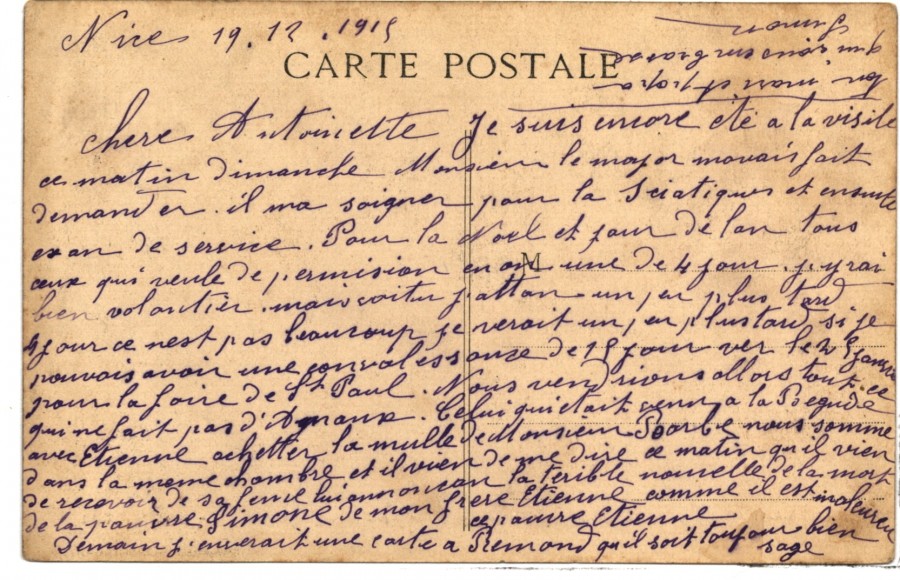 Nice 19.12.1915
CARTE POSTALE
chere Antoinette Je suis encore été a la visite
ce matin dimanche Monsieur le major mavais fait
demander. il ma soigner pour la Sciatiques et ensuite
exan de service. Pour la Noel et jour de lan tous
ceux qui veule de permision en on une de 4 jour. j,y rai
M
bien volontier. mais voitu j,attan un peu plus tard
4 jour ce nest pas beaucoup je verait un peu plus tard si je
pouvais avoir une convalessanse de 15 jour ver le 25 Janvier
pour la foire de St Paul. Nous vendrions allors tout ce
qui ne fait pas d'Agnaux. Celui qui etait venu a la Begude
avec Etienne achetter la mulle de Monsieur Barbe nous somme
dans la meme chambre et il vien de me dire ce matin qu,il vien
de recevoir de sa feme lui anonçan la terible nouvelle de la mort
de la pauvre Simone de mon frere Etienne comme il est maleureu
ce pauvre Etienne
Demain j,enverait une carte a Remond qu,il soit toujour bien
sage